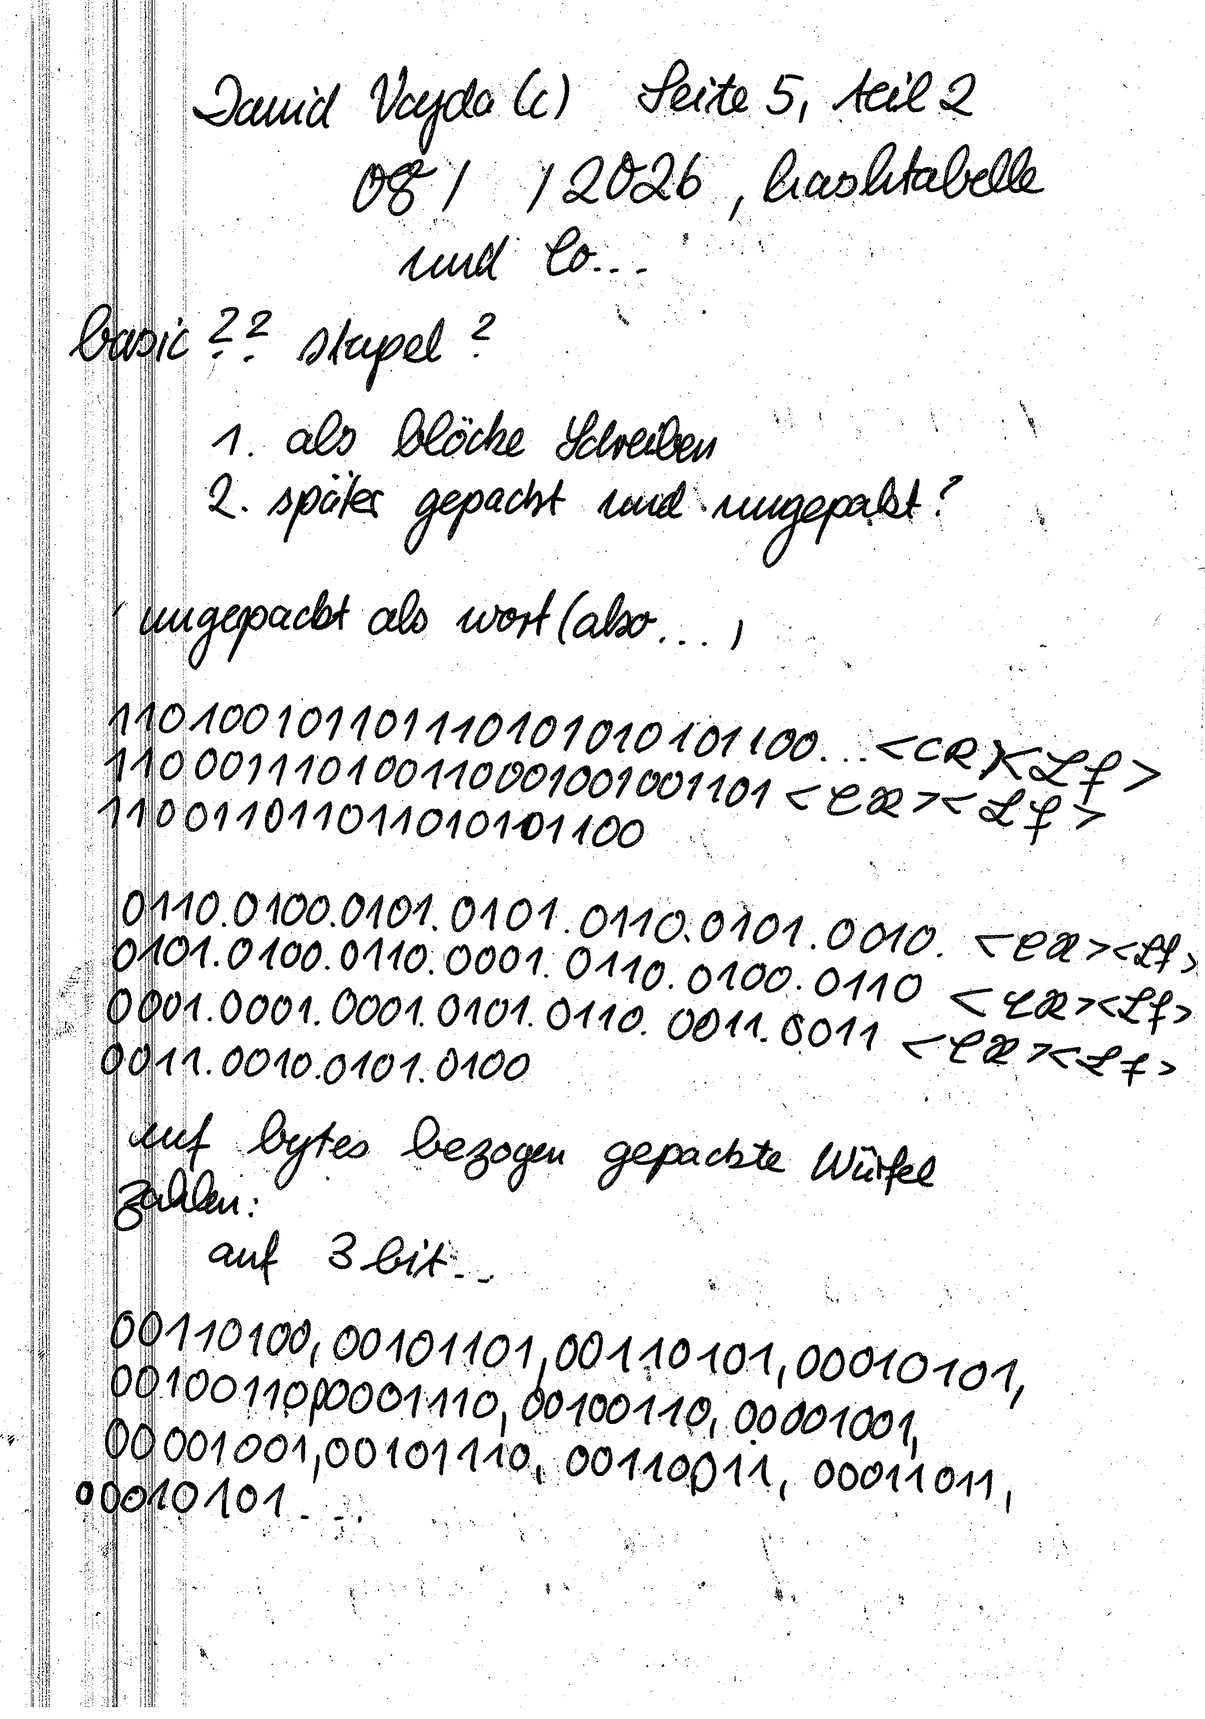 David Vajda (c) Seite 5, teil 2
08 / / 2026 , hashtabelle
und Co...
basic ?? stapel ?
1. als blöcke schreiben
2. später gepackt und ungepakt?
ungepackt als wort (also ... ,
11010010110111010101010101100...<CR><Lf>
110001110100110001001001001101<CR><Lf>
110011011011011010101101100
0110.0100.0101.0101.0110.0101.0010. <CR><Lf>
0101.0100.0110.0001.0110.0100.0110 <CR><Lf>
0001.0001.0001.0101.0110.0011.0011 <CR><Lf>
0011.0010.0101.0100
auf bytes bezogen gepackte Würfel
zahlen:
auf 3 bit...
00110100, 00101101, 00110101, 00010101,
00100110, 00001110, 00100110, 00001001,
00001001, 00101110, 00110011, 00011011,
00010101...